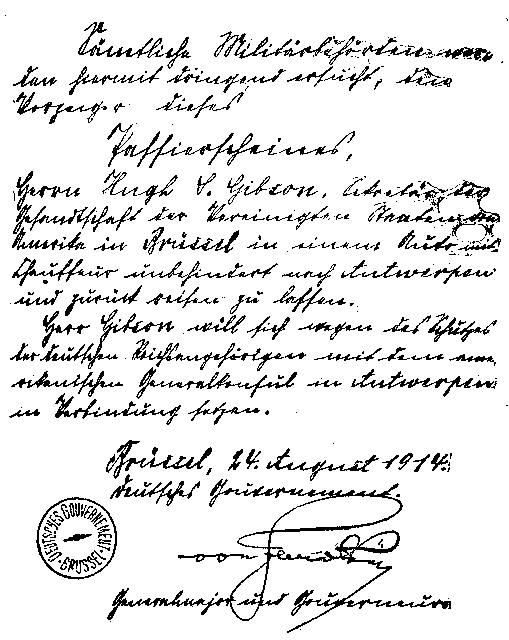 Sämtliche Militärbehörden wer-
den hiermit dringend ersucht, dem
Vorzeiger dieses
Passierscheines,
Herrn Hugh S. Gibson, Sekretär der
Gesandtschaft der Vereinigten Staaten von
Amerika in Brüssel in einem Auto mit
Chauffeur unbehindert nach Antwerpen
und zurück reisen zu lassen.
Herr Gibson will sich wegen des Schutzes
der deutschen Reichsangehörigen mit dem ame-
rikanischen Generalkonsul in Antwerpen
in Verbindung setzen.
Brüssel, 24. August 1914.
Deutsches Gouvernement.
DEUTSCHES GOUVERNEMENT BRÜSSEL
von
Generalmajor und Gouverneur